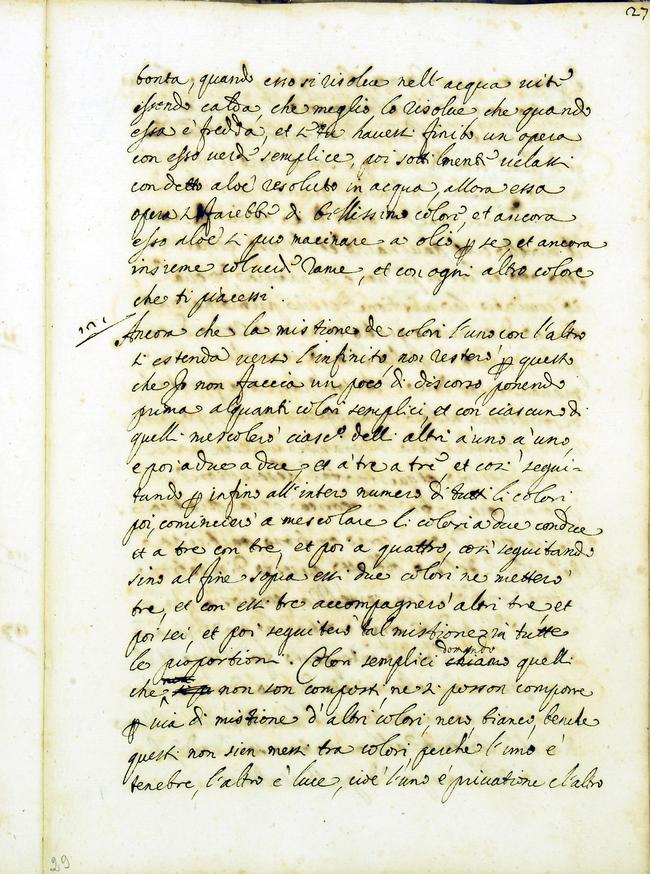 27
bonta, quando esso si risolve nell'acqua vite
essendo calda, che meglio lo risolve che quando
essa è fredda, et se tu havessi finito un opera
con esso verde semplice, poi sottilmente velassi
con detto aloe resoluto in acqua, allora essa
opera si farebbe di bellissimo colore, et ancora
esso aloe si puo macinare a olio p se, et ancora
insieme col verde rame, et con ogni altro colore
che ti piacessi.
Ancora che la mistione de colori l'uno con l'altro
si estenda verso l'infinito, non resterò p questo
che Jo non faccia un poco di discorso ponendo
prima alquanti colori semplici, et con ciascuno di
quelli mescolerò ciasc.º delli altri à uno à uno,
e poi a due a due, et à tre a tre, et cosi segui-
tando p infino all'intero numero di tutti li colori
poi, comincierò a mescolare li colori a due con due
et a tre con tre, et poi a quattro, così seguitando
sino al fine sopra essi due colori ne metterò
tre, et con essi tre accompagnerò altri tre, et
poi sei, et poi seguiterò tal mistione in tutte
le proportioni. Colori semplici domando quelli
che non son composti, ne si posson comporre
p via di mistione d'altri colori, nero, bianco, benche
questi non sien messi tra colori, perche l'uno è
tenebre, l'altro è luce, cioè l'uno è privatione e l'altro
29